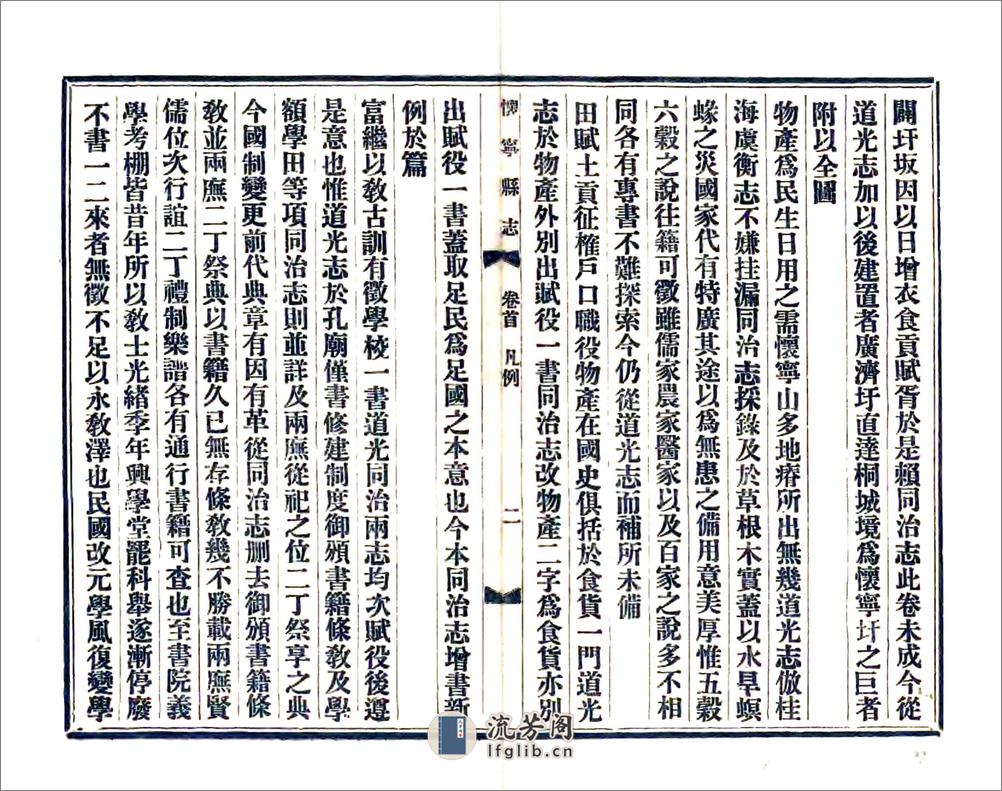 闢圩坂因以日增衣食貢賦胥於是賴同治志此卷未成今從
道光志加以後建置者廣濟圩直達桐城境爲懷寧圩之巨者
附以全圖
物產爲民生日用之需懷寧山多地瘠所出無幾道光志倣桂
海虞衡志不嫌挂漏同治志採錄及於草根木實蓋以水旱螟
蝝之災國家代有特廣其途以爲無患之備用意美厚惟五穀
六穀之說往籍可徵雖儒家農家醫家以及百家之說多不相
同各有專書不難探索今仍從道光志而補所未備
田賦土貢征榷戶口職役物產在國史俱括於食貨一門道光
志於物產外別出賦役一書同治志改物產二字爲食貨亦別
懷寧縣志 卷首 凡例 二
出賦役一書蓋取足民爲足國之本意也今本同治志增書新
例於篇
富繼以敎古訓有徵學校一書道光同治兩志均次賦役後遵
是意也惟道光志於孔廟僅書修建制度御頒書籍條敎及學
額學田等項同治志則並詳及兩廡從祀之位二丁祭享之典
今國制變更前代典章有因有革從同治志删去御頒書籍條
敎並兩廡二丁祭典以書籍久已無存條敎幾不勝載兩廡賢
儒位次行誼二丁禮制樂譜各有通行書籍可查也至書院義
學考棚皆昔年所以敎士光緒季年興學堂罷科舉逐漸停廢
不書一二來者無徵不足以永敎澤也民國改元學風復變學
流芳阁
lfglib.cn